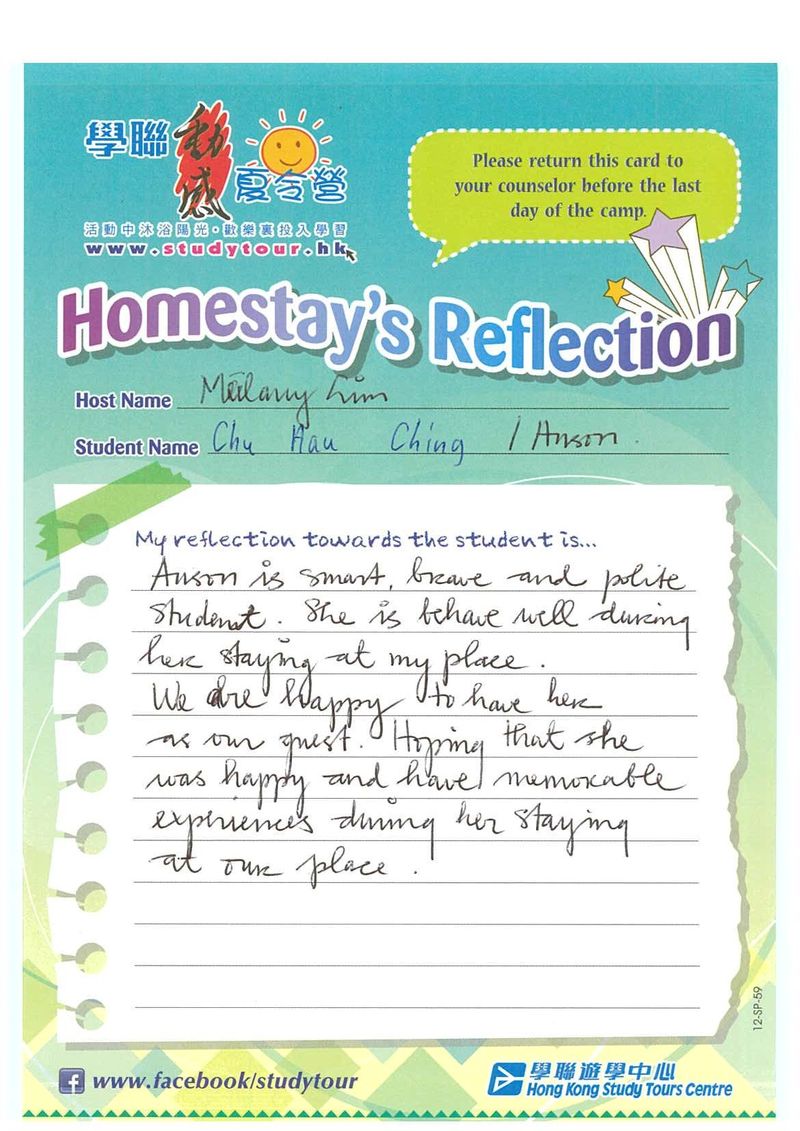 學聯 動感 夏令營
活動中沐浴陽光・歡樂裏投入學習
www.studytour.hk
Please return this card to
your counselor before the last
day of the camp.
Homestay's Reflection
Host Name Lim
Student Name Chu Hau Ching / Anson.
My reflection towards the student is...
Anson is smart, brave and polite
student. She is behave well during
her staying at my place.
We are happy to have her
as our guest. Hoping that she
was happy and have memorable
experiences during her staying
at our place.
12-SP-59
www.facebook/studytour
學聯遊學中心
Hong Kong Study Tours Centre